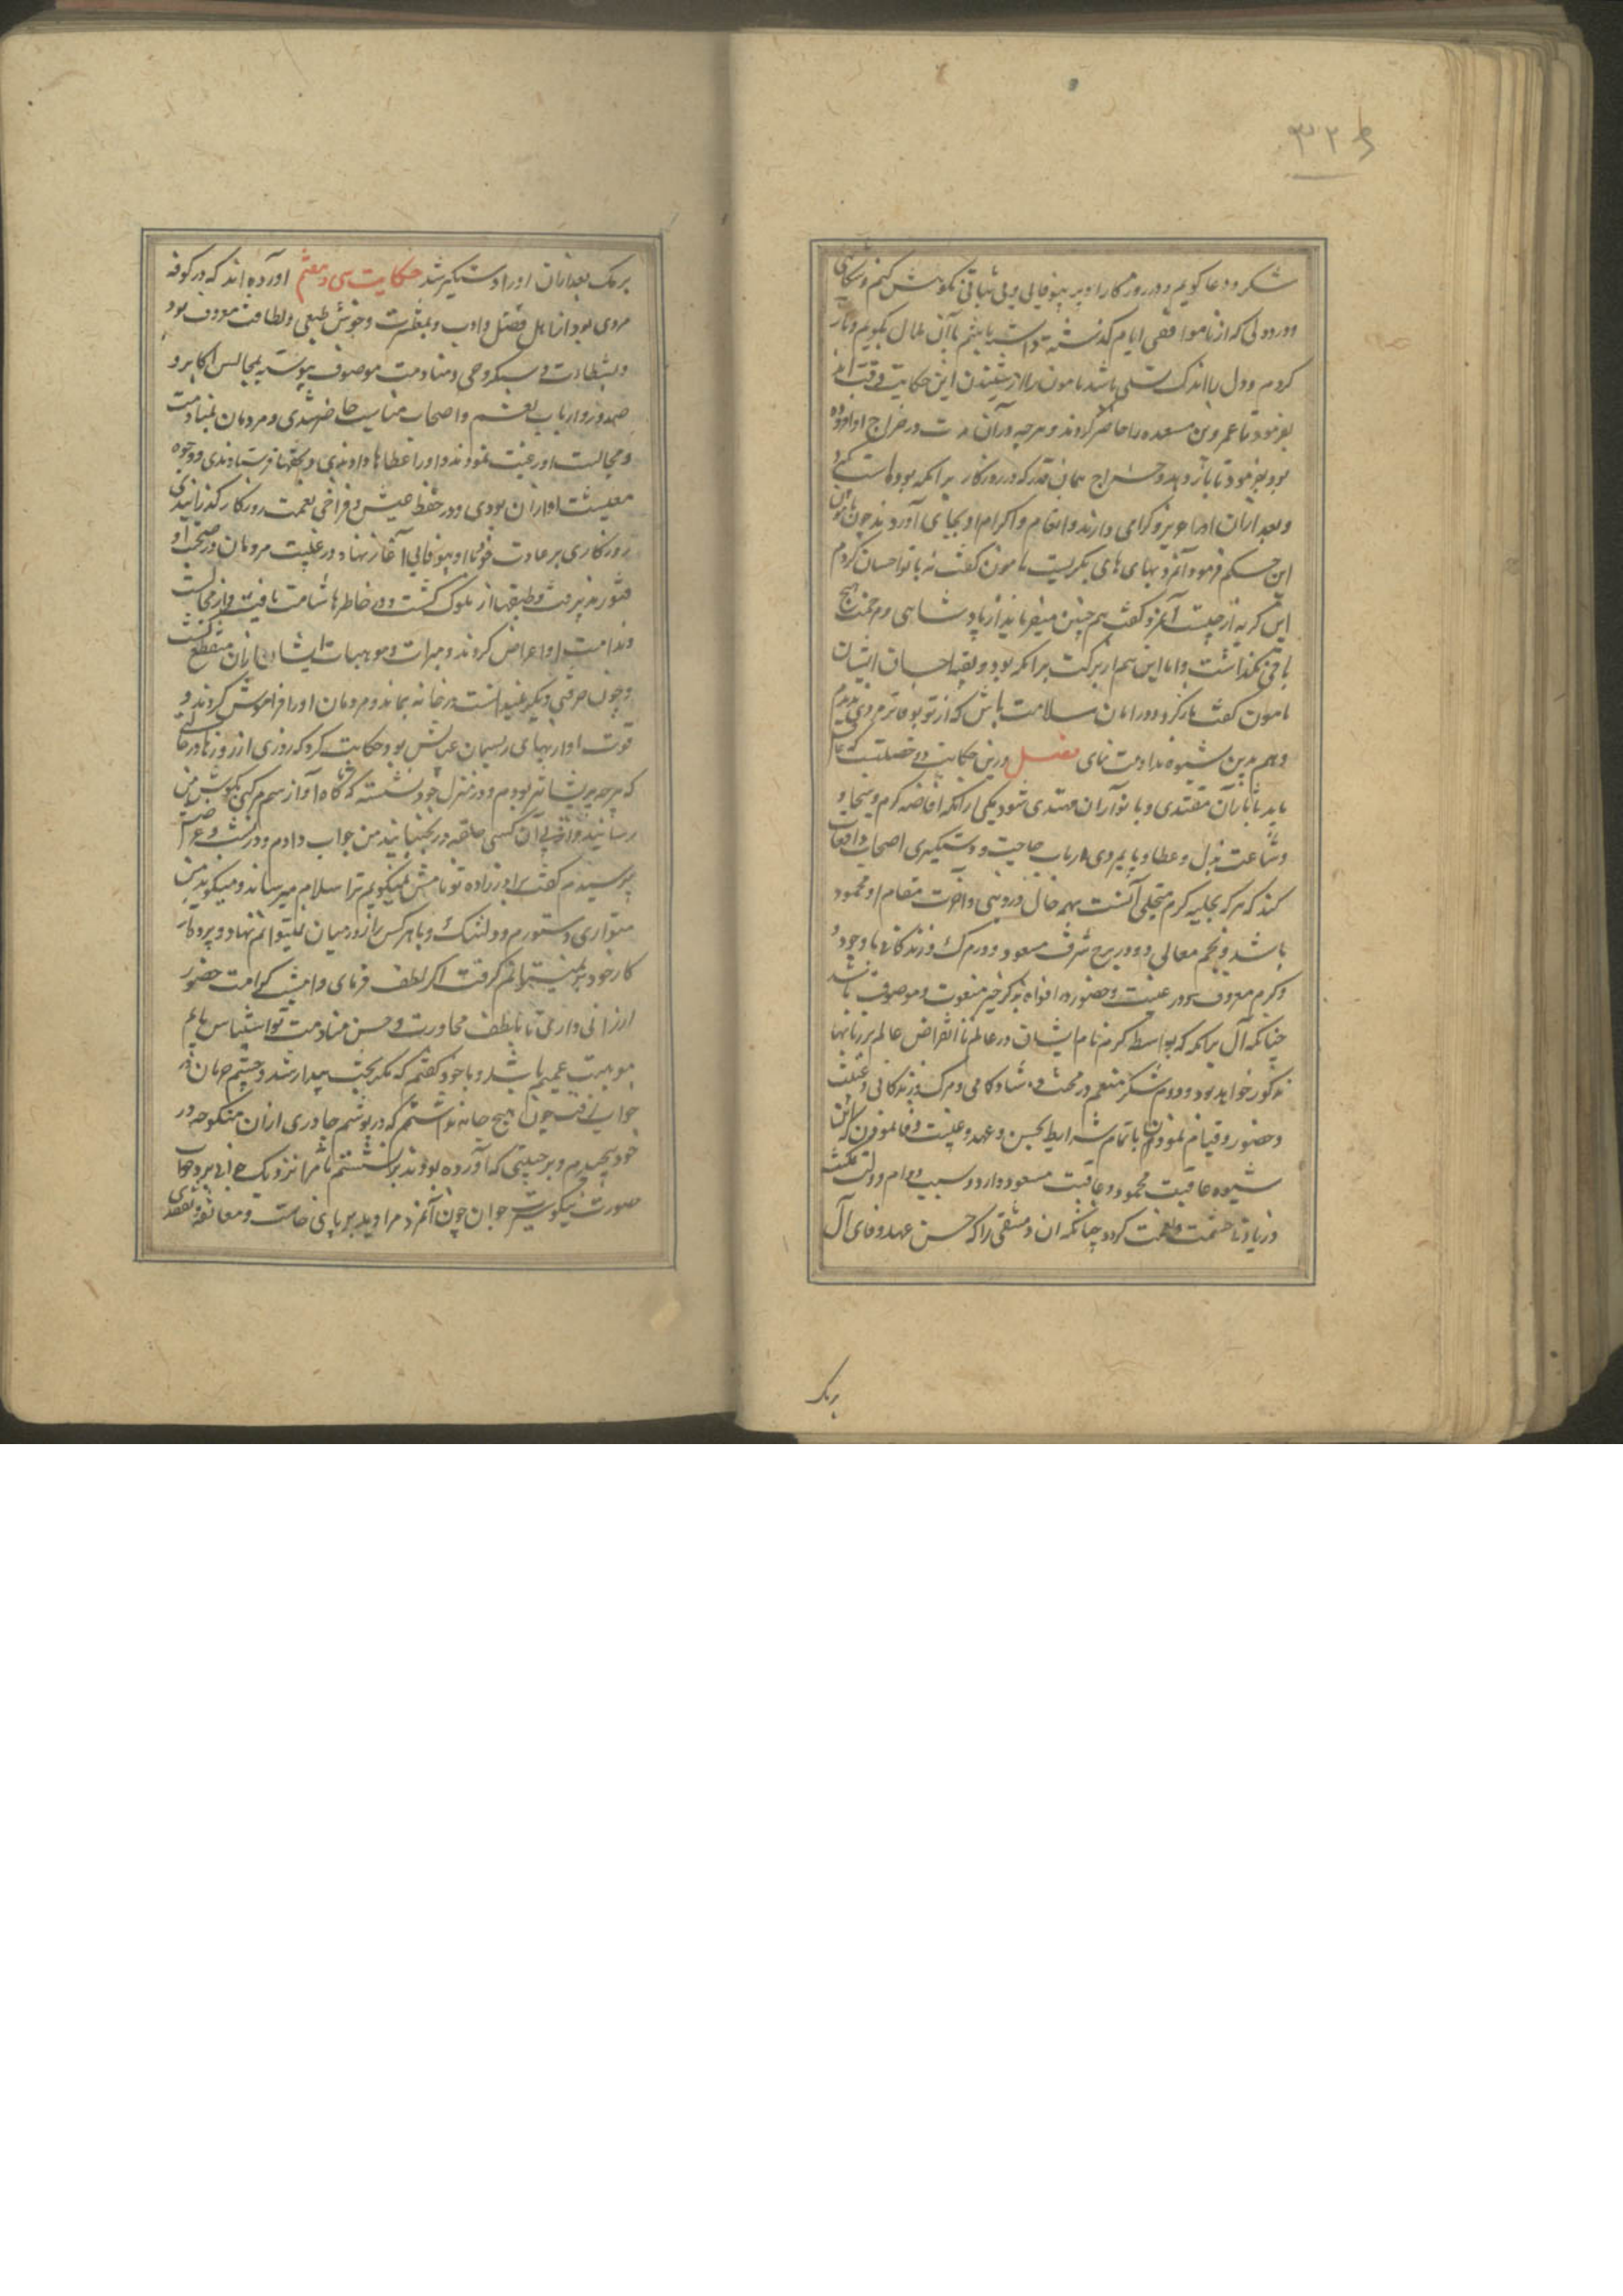 شکر و دعا گویم و در روزگار او بر بیوفایی و بی ثباتی نکوهش کنم و شکایتی
و درد دلی که از ناموافقی ایام گذشته داشته باشم با آن اطلال بگویم و باز
کردم و دل را اندک تسلی باشد مامون را از شنیدن این حکایت رقت آمد
بفرمود تا عمرو بن مسعده را حاضر کردند و هرچه در آن مدت در خراج او افزوده
بود بفرمود تا باز دهد و خراج همان قدر که در روزگار برامکه بوده است گیرد
و بعد از آن او را عزیز و گرامی دارند و انعام و اکرام او بجای آورد چون مامون
این حکم فرمود آنمرد بهای های بگریست مامون گفت نه با تو احسان کردم
این گریه از چیست آنمرد گفت همچنین میفرماید از پادشاهی و مرحمت هیچ
باقی نگذاشت و اما این هم از برکت برامکه بود و بقیه احسان ایشان
مامون گفت بازگرد و در امان سلامت باش که از تو بوفاتر مردی ندیدم
و هم بدین شیوه مداومت نمای فصل درین حکایت دو خصلتست که
باید تا بآن مقتدی و بانوار آن مهتدی شود یکی از آنکه افاضه کرم و سخا و
و اشاعت بذل و عطا و پایمردی ارباب حاجت و دستگیری اصحاب واقعات
کند که هر که بحلیه کرم متحلی گشت بهمه حال در دنیی و آخرت مقام او محمود
باشد و نجم معالی او در برج شرف مسعود و در مرگ و زندگانی با وجود
و کرم معروف و در غیبت و حضور در افواه بذکر خیر منعوت و موصوف باشد
چنانکه آل برامکه که بواسطه کرم نام ایشان در عالم تا انقراض عالم بر زبانها
مذکور خواهد بود و دوم شکر منعم در محنت و شادکامی و مرگ و زندگانی و غیبت
و حضور و قیام نمودن باتمام شرایط بحسن و عهد و غیبت وفا نمودن که این
شیوه عاقبت محمود و عاقبت مسعود دارد و سبب دوام دولت
و زیادت حشمت و نعمت گردد چنانکه آن دمشقی را که حسن عهد و وفای آل
برمک
برمک بعد از آن او را دستگیر شد حکایت سی و هفتم آورده اند که در کوفه
مردی بود از اهل فضل و ادب و بظرافت و خوش طبعی و لطافت معروف بود
و بنشاط و سبکروحی و منادمت موصوف پیوسته بمجالس اکابر و
صدور و ارباب نعم و اصحاب مناصب حاضر شدی و مردمان بمنادمت
و مجالست او رغبت نمودند و او را عطاها دادندی و تحفها فرستادندی و وجوه
معیشت او از آن بودی و در خفض عیش و فراخی نعمت روزگار گذرانیدی
روزگاری بر عادت خود با او بیوفایی آغاز نهاد و رغبت مردمان در صحبت او
فتور پذیرفت و طبعها از ملوک گشت و در خاطرها شامت یافت و از مجالست
و ندامت او اعراض کردند و مبرات و موهبات ایشان از آن منقطع گشت
و چون حرفتی دیگر نمیدانست در خانه بماند و مردمان او را فراموش کردند و
قوت او از بهای ریسمان عیالش بود حکایت کرد که روزی از روزها در حالی
که هرچه پریشانتر بودم و در منزل خود نشسته که ناگاه آواز سم مرکبی بگوش من
رسانید و در پی آن کسی حلقه در بجنبانید من جواب دادم و
پرسیدم گفت برادرزاده تو نامش نمیگویم ترا سلام میرساند و میگوید من
متواری و مستورم و دلتنگ و با هر کس راز در میان نمیتوانم نهاد و پرده از
کار خود بر نمیتوانم گرفت اگر لطف فرمای و امشب کرامت حضور
ارزانی داری تا بلطف محاورت و حسن منادمت تو استیناس یابم
موهبت عمیم باشد و با خود گفتم که مگر بخت بیدار شد و چشم حرمان در
خواب رفت چون هیچ جامه نداشتم که در پوشم چادری از آن منکوحه در
خود پیچیدم و بر جنیبتی که آورده بودند بر نشستم تا مرا نزدیک جوانی برد خوب
صورت نیکو سیرت جوان چون آنمرد مرا دید بر پای خاست و معانقه و تفقدی